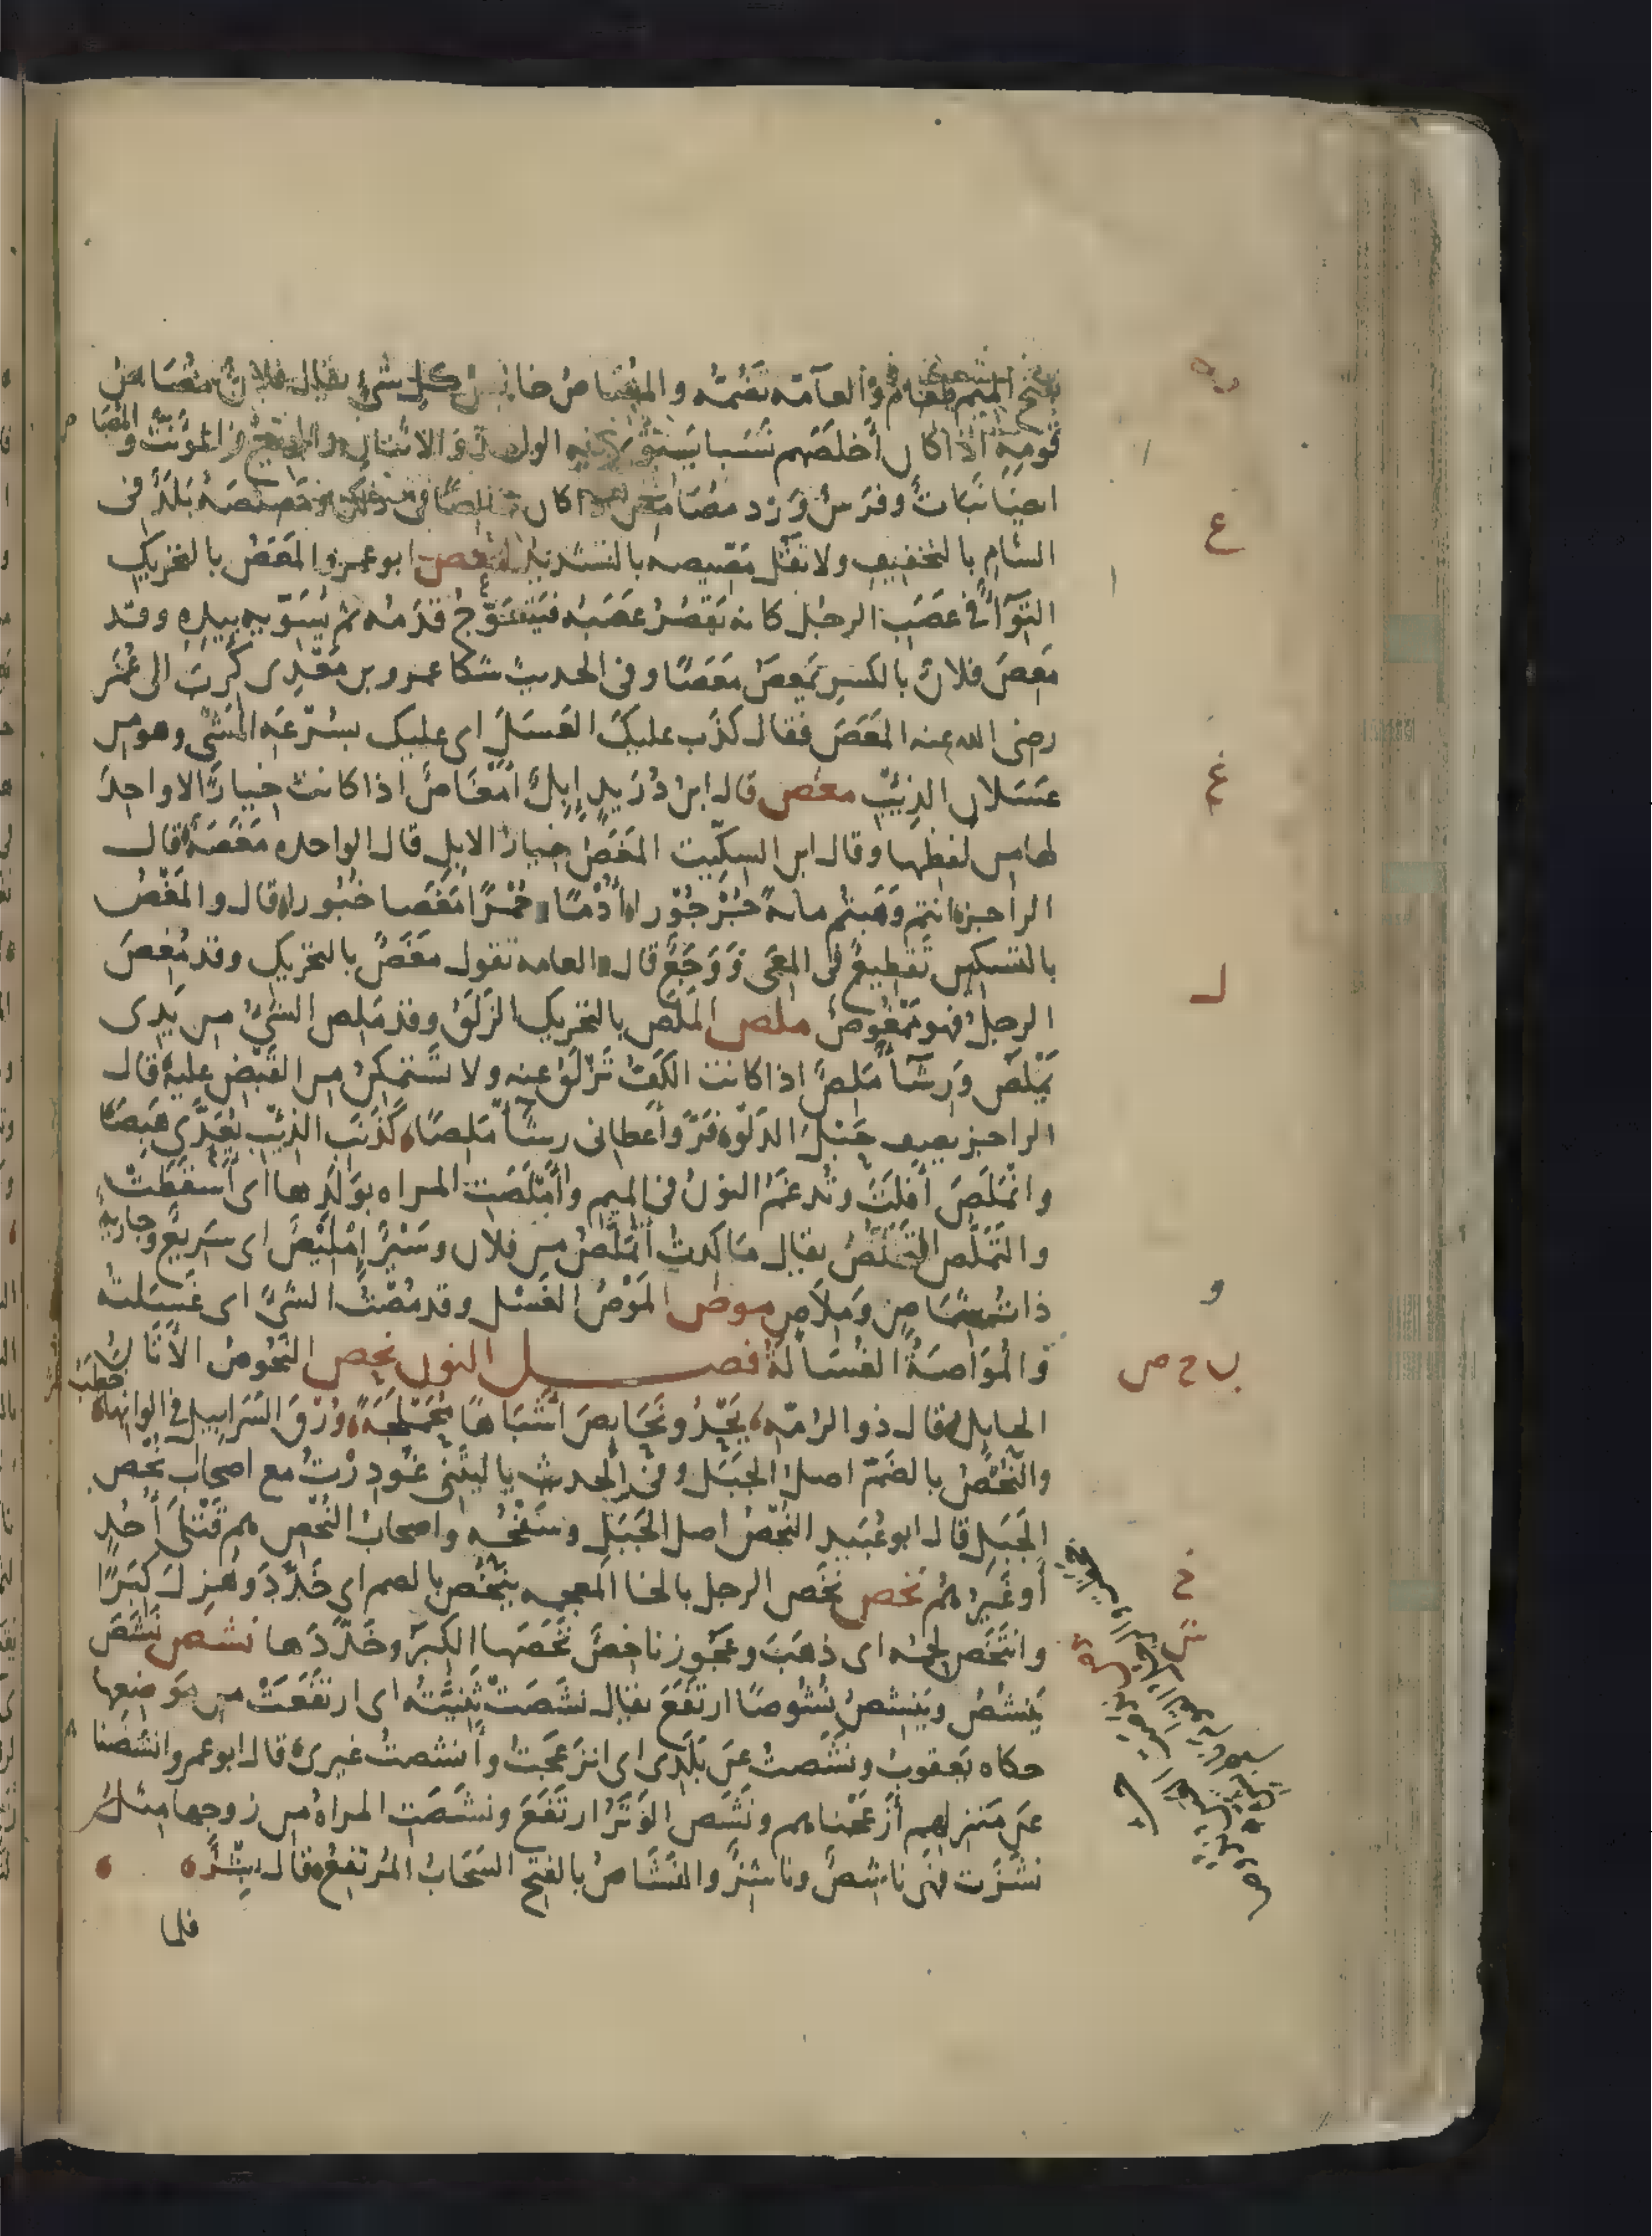 بفتح الميم طعام والعامة تضمه والمصاص خالص كل شئ يقال فلان مصاص
قومه اذا كان أخلصهم نسبا يستوى فيه الواحد والاثنان والجمع والمؤنث والمصاص
ايضا نبات وفرس ورد مصامص اذا كان خالصا فى ذلك ومصيصة بلد فى
الشام بالتخفيف ولا تقل مصيصه بالتشديد معص ابو عمرو المعص بالتحريك
التواء فى عصب الرجل كانه يقصر عصبه فيتعوج قدمه ثم يسويه بيده وقد
معص فلان بالكسر يمعص معصا وفى الحديث شكا عمرو بن معدى كرب الى عمر
رضى الله عنه المعص فقال كذب عليك العسل اى عليك بسرعة المشى وهو من
عسلان الذئب مغص قال ابن دريد إبل أمغاص اذا كانت خيارا لا واحد
لها من لفظها وقال ابن السكيت المغص خيار الابل قال الواحده مغصة قال
الراجز انتم وهبتم مائة جرجورا أدما وحمرا مغصا خبورا قال والمغص
بالتسكين تقطيع فى المعى ووجع قال والعامه تقول مغص بالتحريك وقد مغص
الرجل فهو ممغوص ملص الملص بالتحريك الزلق وقد ملص الشئ من يدى
يملص ورشاء ملص اذا كانت الكف تزلق عنه ولا تستمكن من القبض عليه قال
الراجز يصف حبل الدلو فر وأعطانى رشاء ملصا كذنب الذئب يعدى هبصا
وانملص أفلت وتدغم النون فى الميم وأملصت المراه بولدها اى أسقطت
والتملص التخلص يقال ما كدت أتملص من فلان وسير إمليص اى سريع وجارية
ذات شماص وملاص موص الموص الغسل وقد مصت الشئ اى غسلته
والمواصة الغسالة فصـــل النون نحص النحوص الأتان
الحايل قال ذو الرمة يحدو نحايص اشباها محملجة ورق السرابيل فى الوانها خطب
والنحص بالضم اصل الجبل وفى الحديث يا ليتنى غودرت مع اصحاب نحص
الجبل قال ابو عبيد النحص اصل الجبل وسفحه واصحاب النحص هم قتلى أحد
أو غيرهم نخص نخص الرجل بالخا المعجمه ينخص بالضم اى خدد وهزل كبرا
وانتخص لحمه اى ذهب وعجوز ناخص نخصها الكبر وخددها نشص نشص
ينشص وينشص نشوصا ارتفع يقال نشصت ثنيته اى ارتفعت من موضعها
حكاه يعقوب ونشصت عن بلدى اى انزعجت وأنشصت غيرى قال ابو عمرو انشصنا
عن منزلهم أزعجناهم ونشص الوتر ارتفع ونشصت المراة من زوجها مثل
نشزت فهى ناشص وناشز والنشاص بالفتح السحاب المرتفع قال بشر
فلما
ع
غ
ل
و
ن ح ص
خ
ش